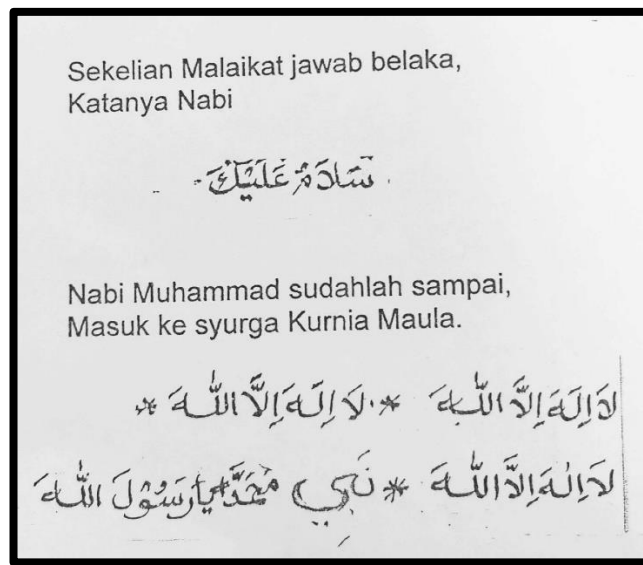 Sekelian Malaikat jawab belaka,
Katanya Nabi
سَلَامٌ عَلَيْكَ
Nabi Muhammad sudahlah sampai,
Masuk ke syurga Kurnia Maula.
لَا اِلٰهَ اِلَّا اللّٰهَ * لَا اِلٰهَ اِلَّا اللّٰهَ *
لَا اِلٰهَ اِلَّا اللّٰهَ * نَبِي مُحَمَّد يَارَسُوْلَ اللّٰهَ